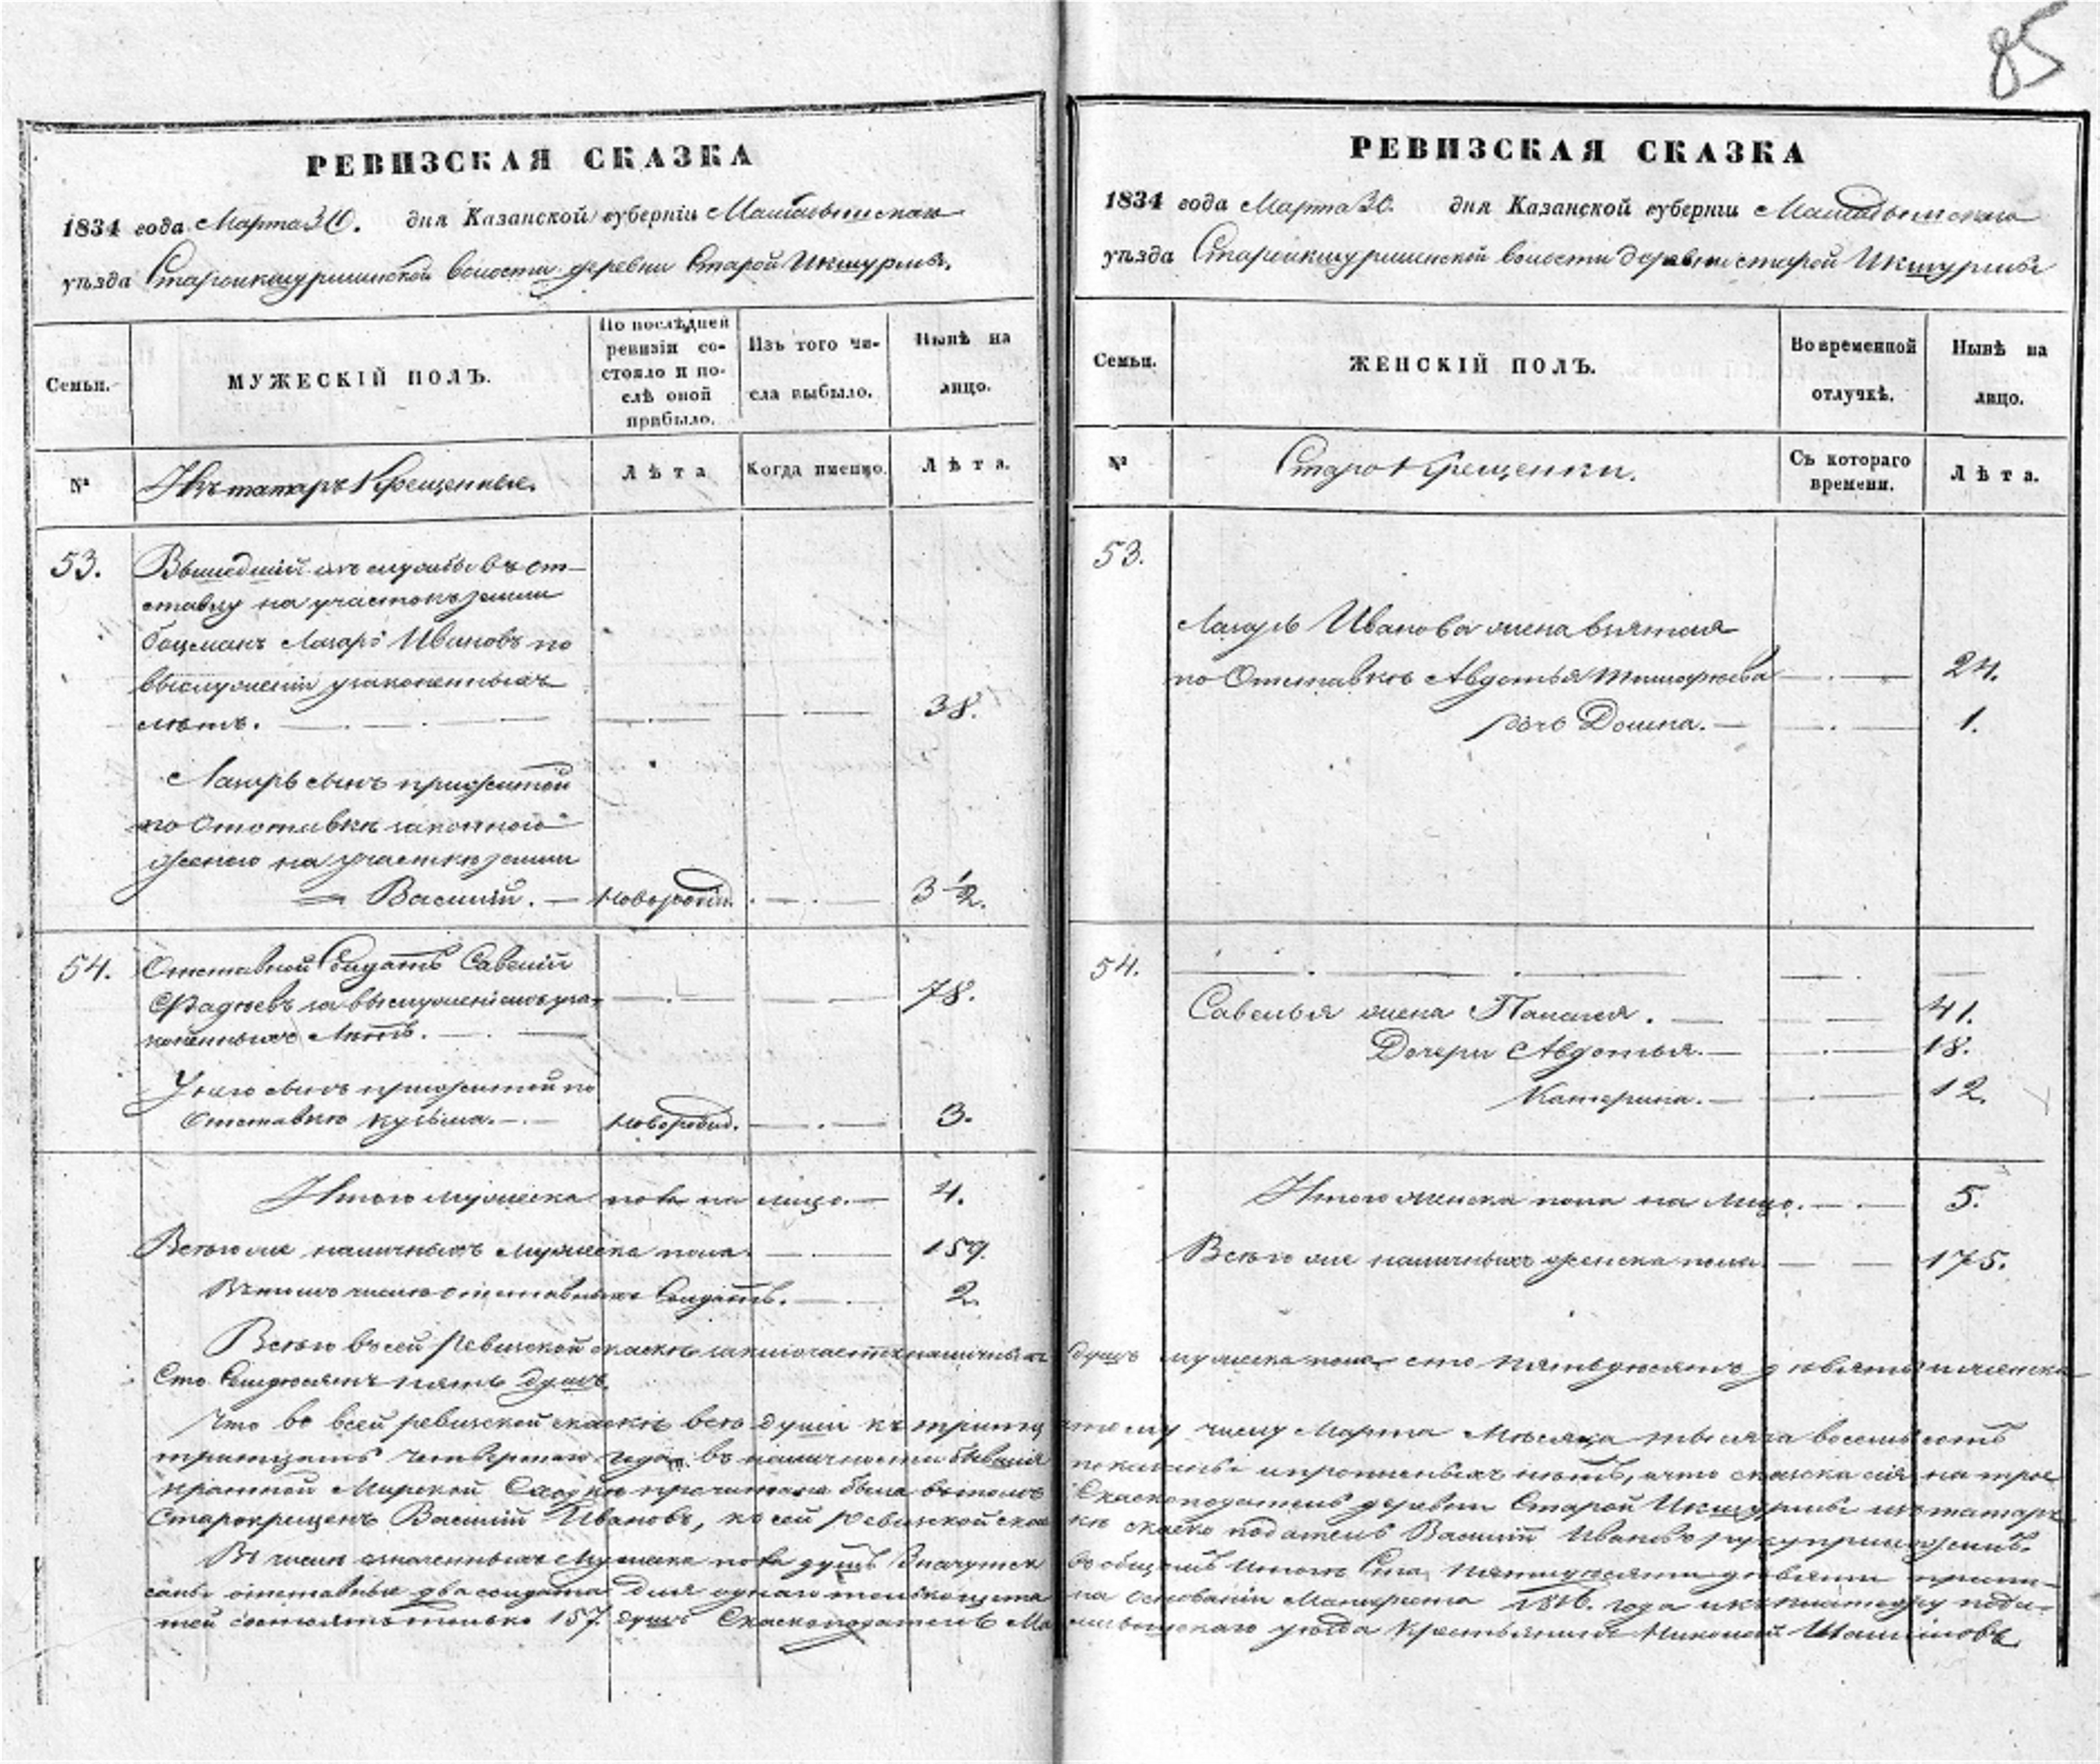 85
РЕВИЗСКАЯ СКАЗКА
1834 года Марта 30. дня Казанской губерніи Мамадышскаго
уѣзда Староикшурминской волости деревни Старой Икшурмы.
Семьи.
МУЖЕСКІЙ ПОЛЪ.
По послѣдней ревизіи состояло и послѣ оной прибыло.
Изъ того числа выбыло.
Нынѣ на лицо.
№
Изъ татаръ Крещенные.
Лѣта
Когда именно.
Лѣта.
53.
Вышедшій изъ службы въ от-
ставку на участокъ земли
боцманъ Лазарь Ивановъ по
выслуженіи узаконенныхъ
лѣтъ. 38.
Лазаря сынъ прижитой
по Отставкѣ законною
женою на участкѣ земли
Василій. новорожд. 3 1/2.
54. Отставной Солдатъ Савелій
Фадѣевъ за выслуженіемъ уза- 78.
коненныхъ Лѣтъ.
У него сынъ прижитой по
Отставкѣ Кузьма. новорожд. 3.
Итого мужеска пола на лицо. 4.
Всѣхъ же наличныхъ мужеска пола. 159.
Въ томъ числѣ отставныхъ Солдатъ. 2.
РЕВИЗСКАЯ СКАЗКА
1834 года Марта 30. дня Казанской губерніи Мамадышскаго
уѣзда Староикшурминской волости деревни Старой Икшурмы
Семьи.
ЖЕНСКІЙ ПОЛЪ.
Во временной отлучкѣ.
Нынѣ на лицо.
№
Старокрещенки.
Съ котораго времени.
Лѣта.
53.
Лазаря Иванова жена взятая
по Отставкѣ Авдотья Тимофеева 24.
дочь Домна. 1.
54.
Савелья жена Палагея. 41.
Дочери Авдотья. 18.
Катерина. 12.
Итого женска пола на лицо. 5.
Всѣхъ же наличныхъ женска пола 175.
Всего въ сей Ревизской сказкѣ заключается наличныхъ душъ мужеска пола сто пятьдесятъ девять и женска
Сто Семдесятъ пять душъ.
Что во всей ревизской сказкѣ всѣ души къ тритцатому числу Марта Мѣсяца тысяча восемь сотъ
тритцать четвертаго года въ наличности бывшія показаны и прописныхъ нѣтъ, и что сказка сія на трое
кратной Мирской Сходкѣ прочитана была въ томъ Сказкоподатель деревни Старой Икшурмы изъ татаръ
Старокрещенъ Василій Ивановъ, къ сей ревизской сказкѣ сказкоподатель Василій Ивановъ руку приложилъ.
Въ числѣ означенныхъ Мужеска пола душъ Значутся въ общемъ Итогѣ Ста пятидесяти девяти
отставные два солдата для одного только щета на основаніи Манифеста 1816. года и къ платежу пода-
тей состоятъ только 157. душъ Сказкоподатель Мамадышскаго уѣзда Крестьянинъ Николай